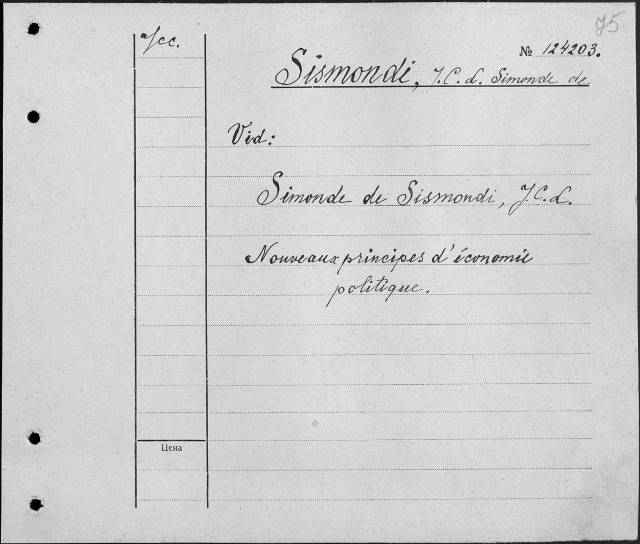 95
a/cc.
№ 124203.
Sismondi, J. C. L. Simonde de
Vid:
Simonde de Sismondi, J. C. L.
Nouveaux principes d'économie
politique.
Цена